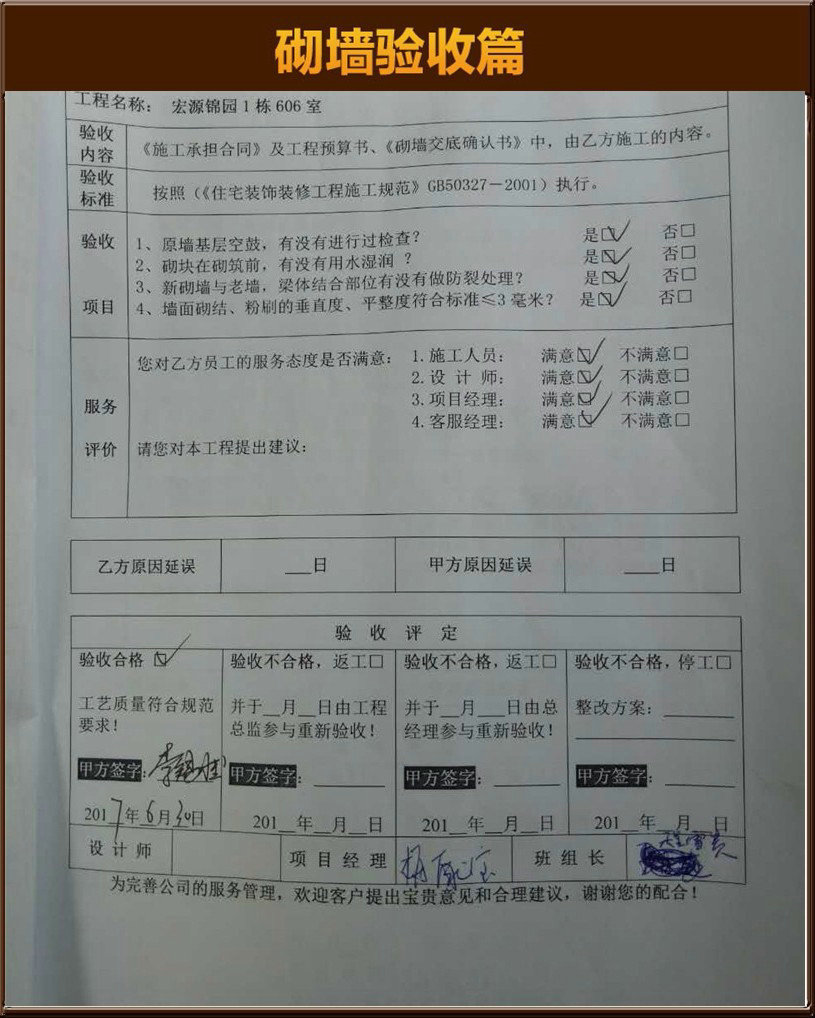 砌墙验收篇
工程名称：宏源锦园1栋606室
验收
内容
《施工承担合同》及工程预算书、《砌墙交底确认书》中，由乙方施工的内容。
验收
标准
按照（《住宅装饰装修工程施工规范》GB50327－2001）执行。
验收
项目
1、原墙基层空鼓，有没有进行过检查？ 是☑ 否□
2、砌块在砌筑前，有没有用水湿润？ 是☑ 否□
3、新砌墙与老墙，梁体结合部位有没有做防裂处理？ 是☑ 否□
4、墙面砌结、粉刷的垂直度、平整度符合标准≤3毫米？ 是☑ 否□
服务
评价
您对乙方员工的服务态度是否满意： 1.施工人员： 满意☑ 不满意□
2.设计师： 满意☑ 不满意□
3.项目经理： 满意☑ 不满意□
4.客服经理： 满意☑ 不满意□
请您对本工程提出建议：
乙方原因延误 ___日 甲方原因延误 ___日
验收评定
验收合格☑
工艺质量符合规范
要求！
甲方签字：
2017年6月30日
验收不合格，返工□
并于__月__日由工程
总监参与重新验收！
甲方签字：______
201__年__月__日
验收不合格，返工□
并于__月___日由总
经理参与重新验收！
甲方签字：______
201__年__月__日
验收不合格，停工□
整改方案：______
甲方签字：______
201__年__月__日
设计师 项目经理 班组长
为完善公司的服务管理，欢迎客户提出宝贵意见和合理建议，谢谢您的配合！